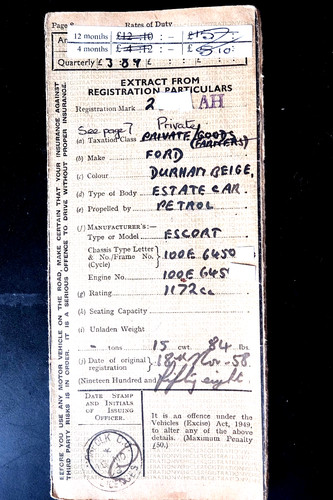 Page Rates of Duty
12 months £12-10 :-
4 months £4-12 :-
Quarterly £
EXTRACT FROM
REGISTRATION PARTICULARS
Registration Mark 2 AH
See page 7 Private
(a) Taxation Class PRIVATE/GOODS
(FARMERS)
(b) Make FORD
(c) Colour DURHAM BEIGE.
(d) Type of Body ESTATE CAR.
(e) Propelled by PETROL
(f) MANUFACTURER'S:—
Type or Model ESCORT
Chassis Type Letter
& No./Frame No. 100E 6450
(Cycle)
Engine No. 100E 645
(g) Rating 1172cc
(h) Seating Capacity
(i) Unladen Weight
– tons 15 cwt. 84 lbs.
(j) Date of original 18th Nov - 58.
registration
(Nineteen Hundred and fifty eight.
DATE STAMP
AND INITIALS
OF ISSUING
OFFICER.
It is an offence under the
Vehicles (Excise) Act, 1949,
to alter any of the above
details. (Maximum Penalty
£50.)
BEFORE YOU USE ANY MOTOR VEHICLE ON THE ROAD, MAKE CERTAIN THAT YOUR INSURANCE AGAINST
THIRD PARTY RISKS IS IN ORDER. IT IS A SERIOUS OFFENCE TO DRIVE WITHOUT PROPER INSURANCE.